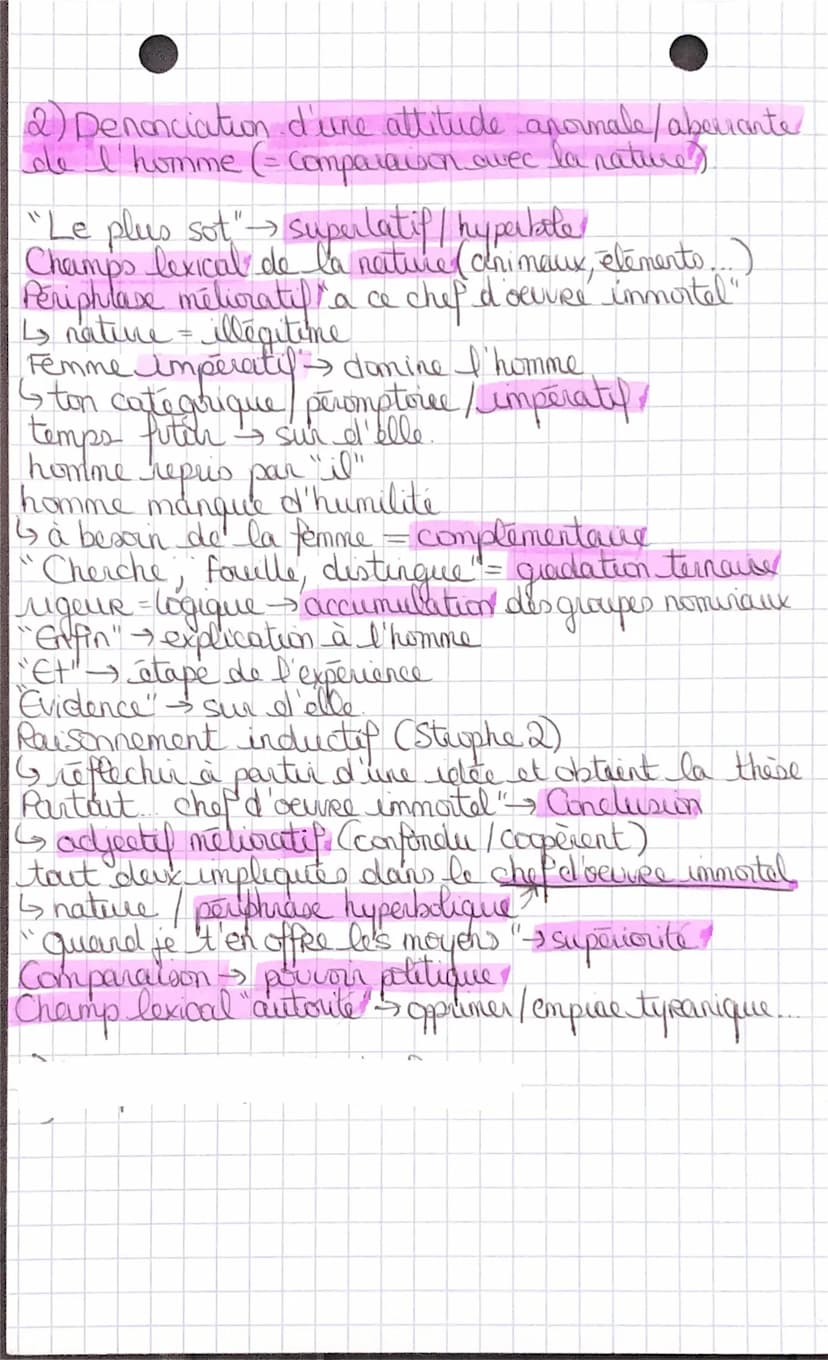 2) Denonciation d'une attitude anormale/aberrante
de l'homme (= comparaison avec la nature)
"Le plus sot" → superlatif / hyperbole
Champs lexical de la nature (animaux, élements...)
Périphrase mélioratif "a ce chef d'oeuvre immortel"
↳ nature = illégitime
Femme impératif → domine l'homme
↳ ton catégorique / péromptoire / impératif
temps futur → sur d'elle.
homme repris par "il"
homme manque d'humilité
↳ à besoin de la femme = complémentaire
"Cherche, fouille, distingue" = gradation ternaire
rigeur = logique → accumulation des groupes nominaux
"Enfin" → explication à l'homme
"Et" → étape de l'expérience
"Evidence" → sur d'elle.
Raisonnement inductif (Strophe 2)
↳ réflechir à partir d'une idée et obtient la thèse
Partout... chef d'oeuvre immortel" → Conclusion
↳ adjectif mélioratif (confondu / coopèrent)
tout deux impliqués dans le chef d'oeuvre immortel
↳ nature / périphrase hyperbolique
"quand je t'en offre les moyens" → supériorité
Comparaison → pouvoir politique
Champ lexical "autorité" → opprimer / empire tyranique...